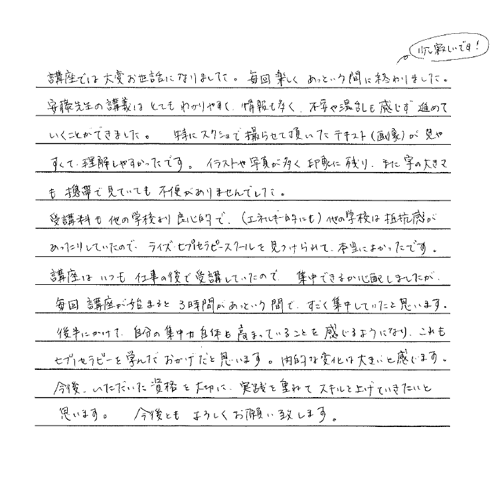 心寂しいです!
講座では大変お世話になりました。毎回楽しく あっという間に終わりました。
安藤先生の講義は とても わかりやすく、情報も多く、不安や混乱も感じず 進めて
いくことができました。 特にスクショで撮らせて頂いた テキスト(画像)が 見や
すくて 理解しやすかったです。 イラストや写真が多く 印象に残り、また 字の大きさ
も 携帯で見ていても 不便がありませんでした。
受講料も 他の学校より 良心的で、(エネルギー的にも)他の学校は抵抗感が
あったりしていたので、ライズセブセラピースクールを見つけられて、本当によかったです。
講座は いつも 仕事の後で受講していたので、 集中できるか心配しましたが、
毎回 講座が始まると 3時間が あっという間で、すごく集中していたと思います。
後半にかけて、自分の集中力自体も 高まっていることを 感じるようになり、これも
セブセラピーを学んだ おかげだと思います。内的な変化は大きいと感じます。
今後、いただいた資格を大切に、実践を重ねて スキルを上げていきたいと
思います。 今後とも よろしくお願い致します。